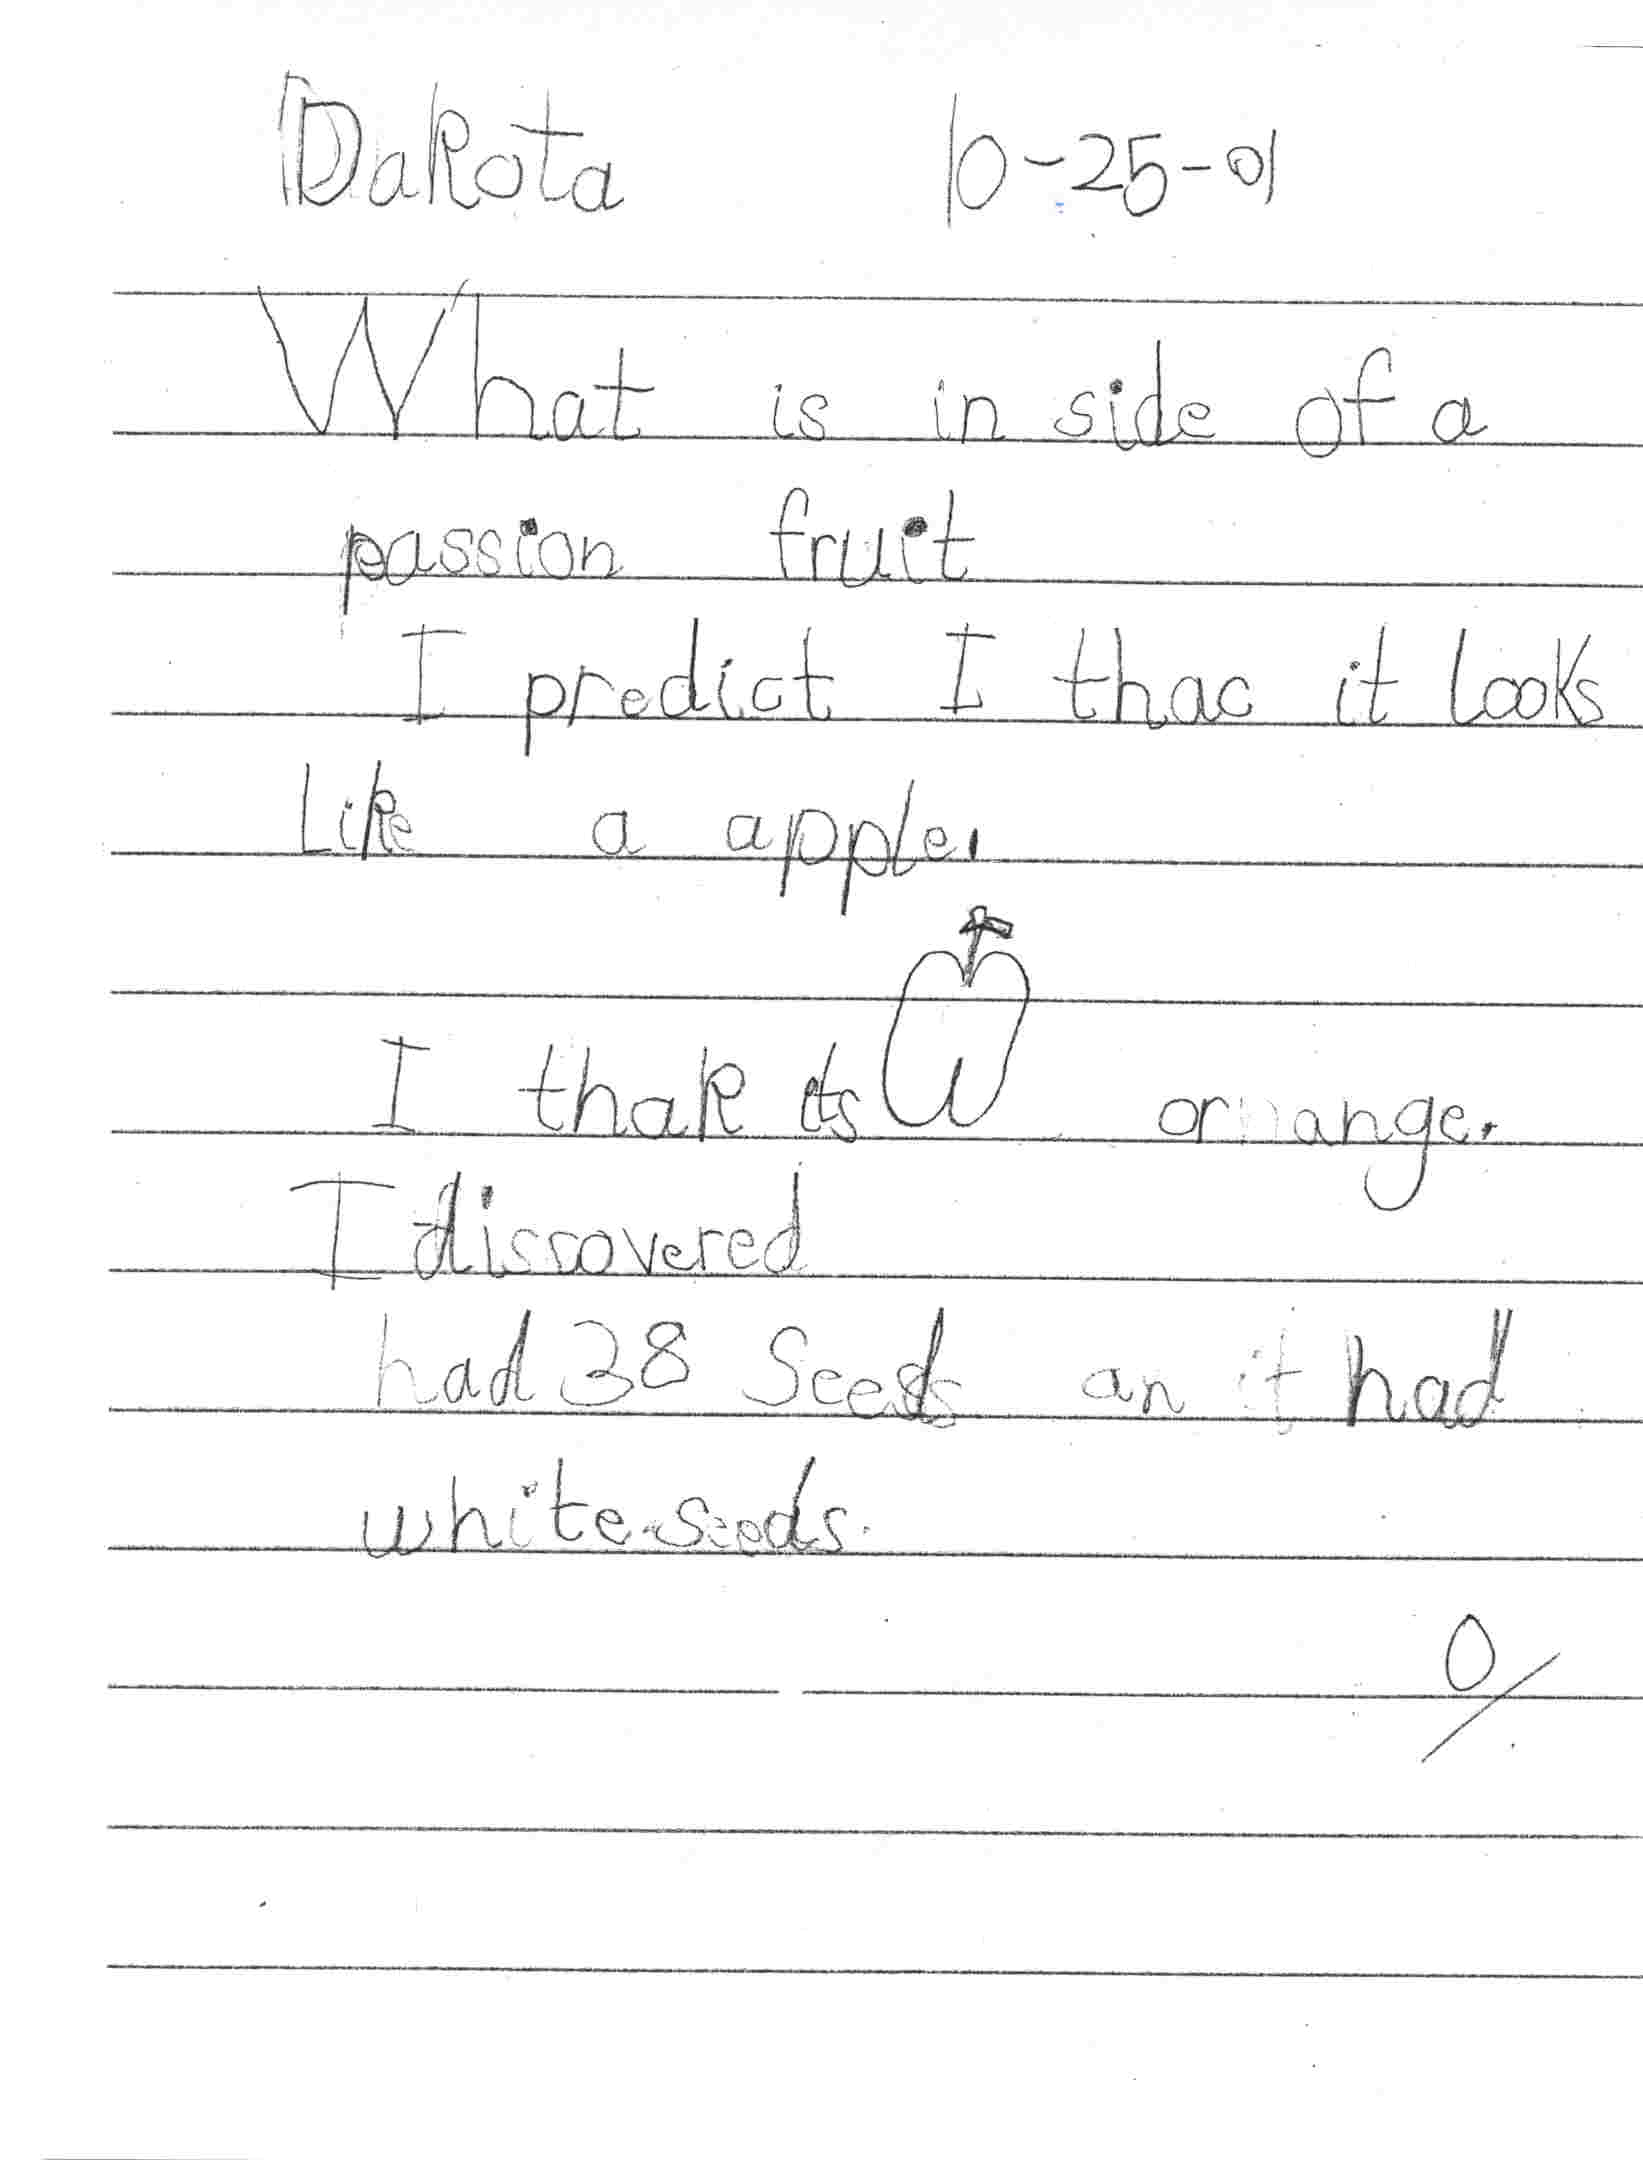 Dakota 10-25-01
What is in side of a
passion fruit
I predict I thac it looks
Like a apple.
I thak its orange.
I discovered
had 38 Seeds an it had
white seeds.